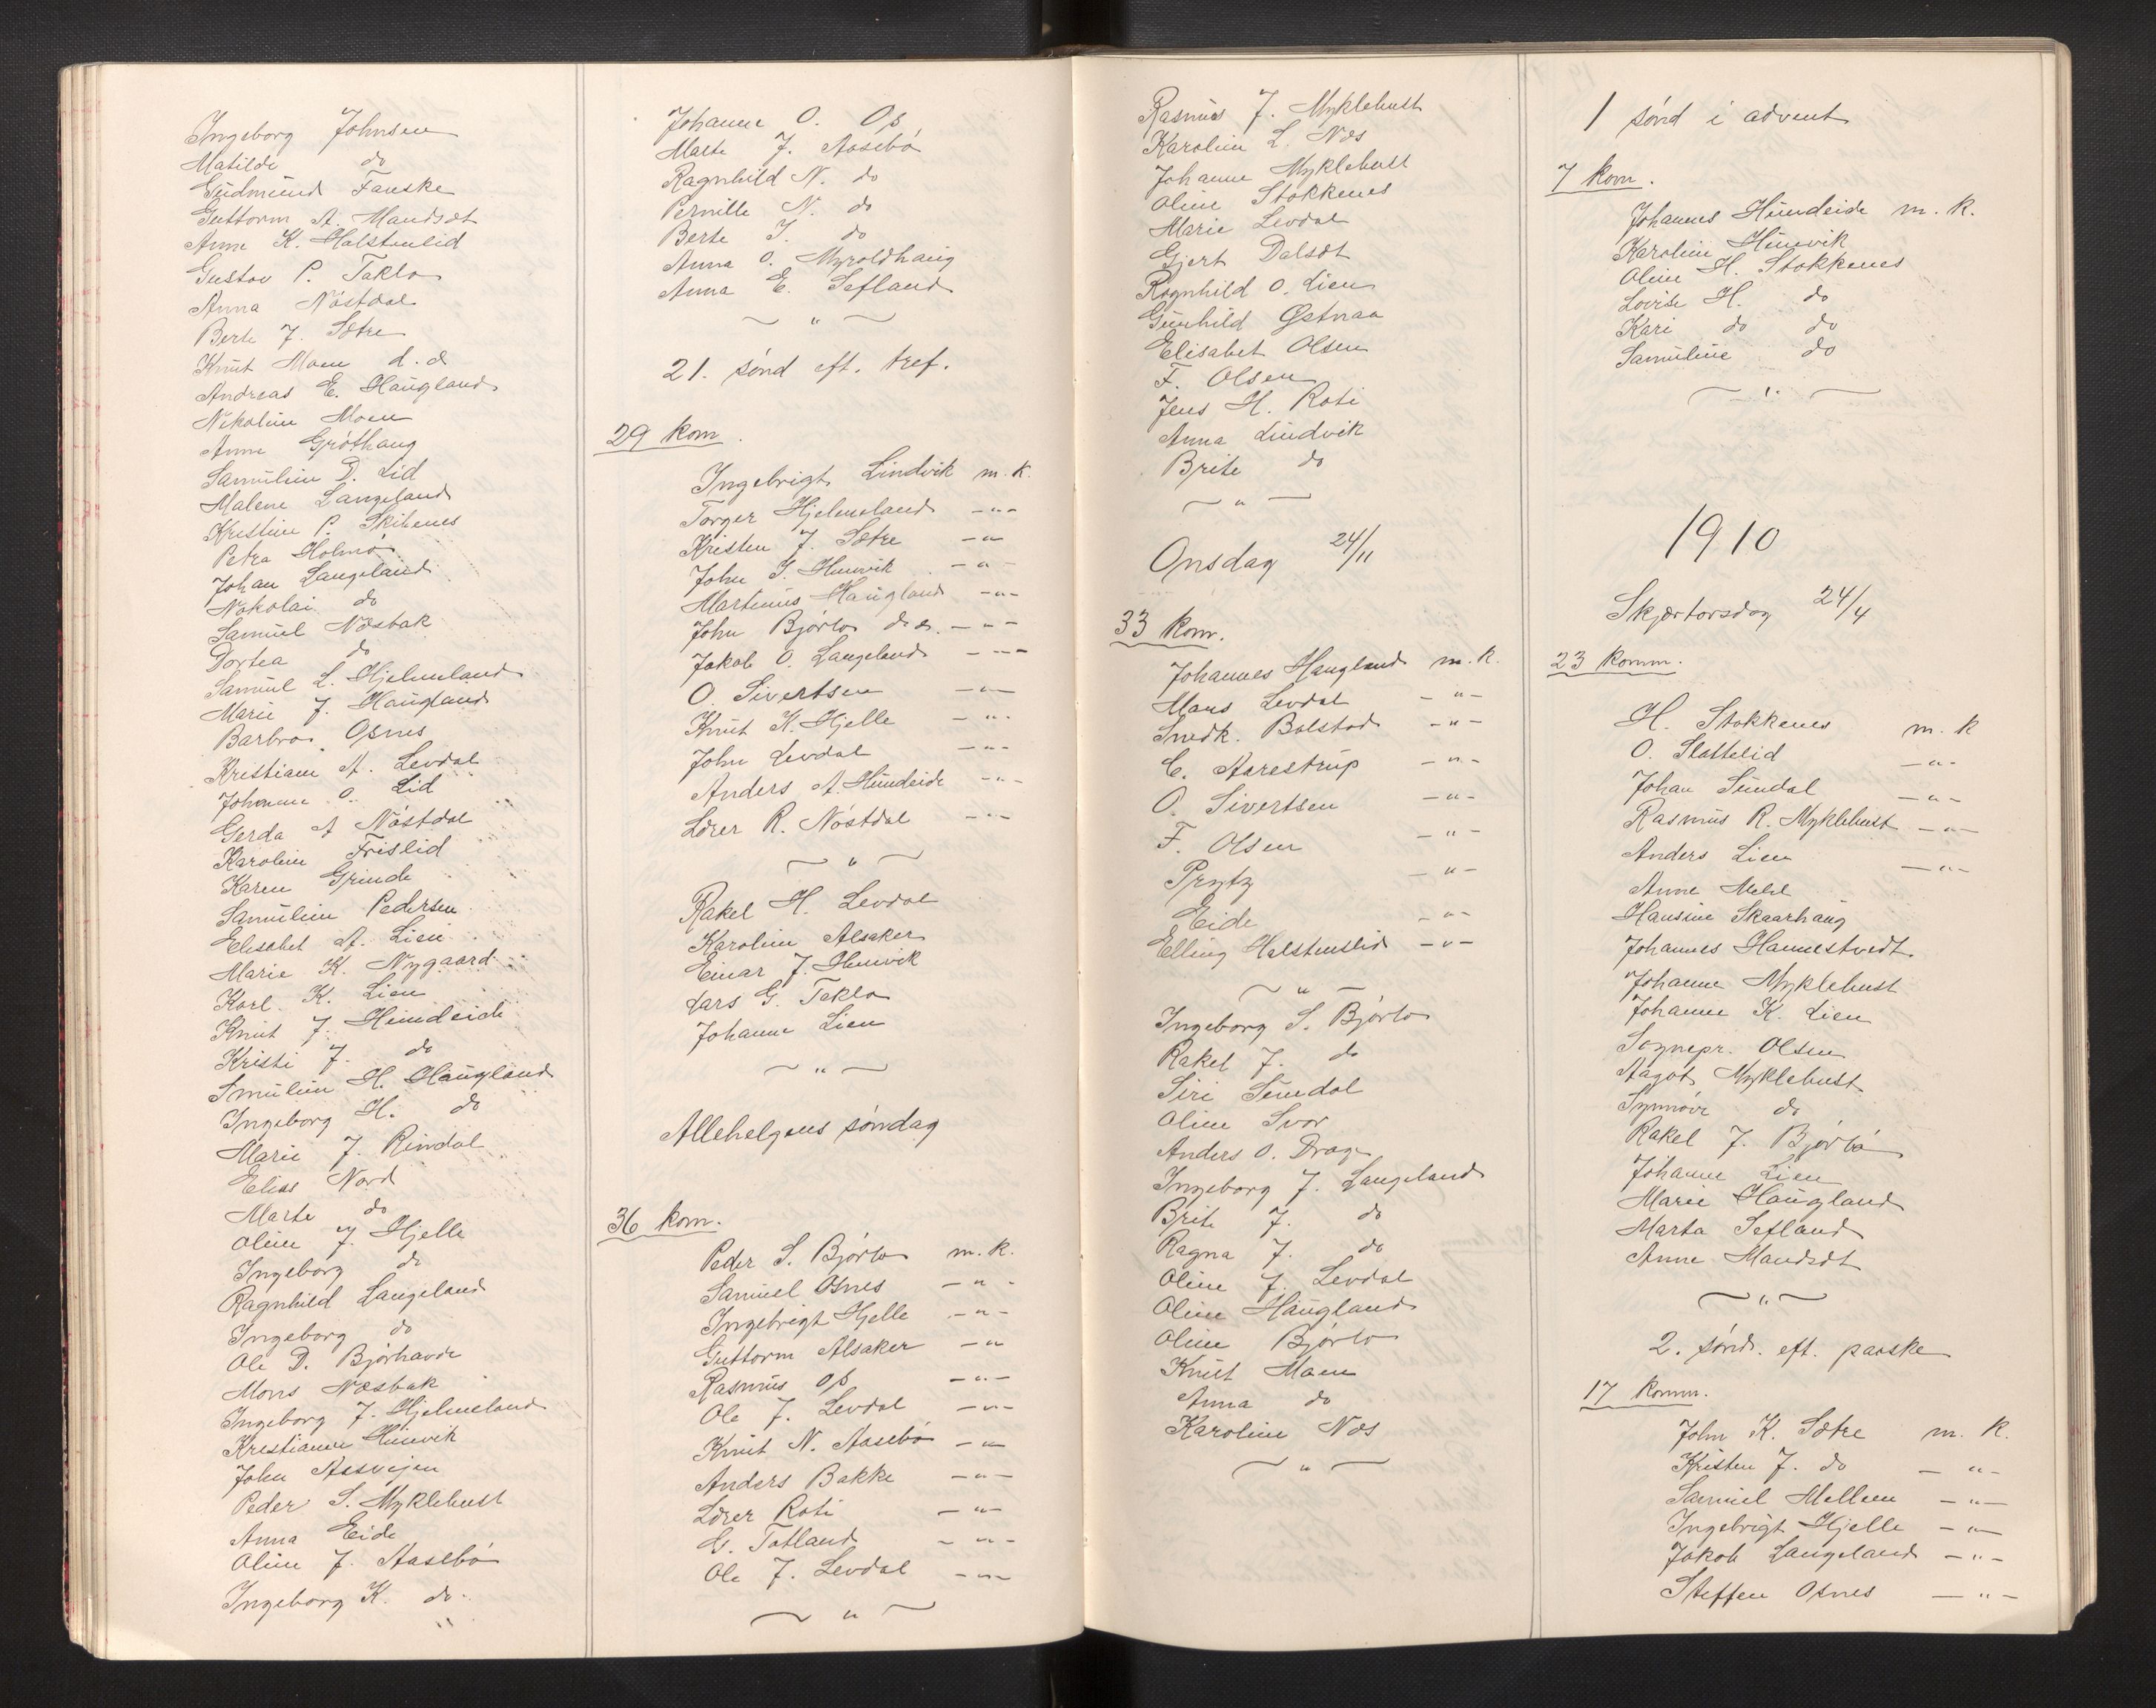 Ingeborg Johnsen
Matilde do
Gudmund Fanske
Guttorm A. Mandsdt
Anne K. Halstenlid
Gustav P. Taklo
Anna Nöstdal
Berte J. Sætre
Knut Moen d.d
Andreas E. Haugland
Nikoline Moen
Anne Gröthaug
Samuline D. Lid
Malene Langeland
Kristine P. Skibenes
Petra Holmö
Johan Langeland
Nokolai do
Samuel Næsbak
Dortea do
Samuel L. Hjelmeland
Marie J. Haugland
Barbro Osnes
Kristiane A. Levdal
Johanne O. Lid
Gerda A Nöstdal
Karoline Frislid
Karen Grinde
Samuline Pedersen
Elisabet A. Lien
Marie K. Nygaard
Karl K. Lien
Knut J. Hundeide
Kristi J. do
Smuline H. Haugland
Ingeborg H. do
Marie J. Rindal
Elias Nord
Marte do
Oline J. Hjelle
Ingeborg do
Ragnhild Langeland
Ingeborg do
Ole D. Bjørhavde
Mons Næsbak
Ingeborg J. Hjelmeland
Kristianne Hunvik
John Aasvejen
Peder S. Myklebust
Anna Eide
Oline J. Aasebö
Ingeborg K. do
Johanne O. Os
Marte J. Aasebö
Ragnhild N. do
Pernille N. do
Berte J. do
Anna O. Myroldhaug
Anna E. Sefland
— " —
21. sönd eft. tref.
29 kom.
Ingebrigt Lindvik m. k.
Torger Hjelmeland - " -
Kristen J. Sætre - "
John J. Hunvik - " -
Martinus Haugland - " -
John Bjørlo d.e. - " -
Jakob O. Langeland - " -
O. Sivertsen - " -
Knut K. Hjelle - " -
John Levdal - " -
Anders A. Hundeide - " -
Lærer R. Nöstdal - " -
— " —
Rakel H. Levdal
Karoline Alsaker
Einar J. Hunvik
Lars G. Taklo
Johanne Lien
— " —
Allehelgens söndag
36 kom.
Peder S. Bjørlo m. k.
Samuel Osnes - " -
Ingebrigt Hjelle - " -
Guttorm Alsaker - "
Rasmus Os - " -
Ole J. Levdal - " -
Knut N. Aasebö - "
Anders Bakke - " -
Lærer Roti - " -
G. Totland - " -
Ole J. Levdal - " -
— " —
Rasmus J. Myklebust
Karoline L. Næs
Johanne Myklebust
Oline Stokkenes
Marie Levdal
Gjert Dalsdt
Ragnhild O. Lien
Gunhild Østnaa
Elisabet Olsen
F. Olsen
Jens H. Roti
Anna Lindvik
Brite do
— " —
Onsdag 24/11
33 kom.
Johannes Haugland m. k.
Mons Levdal - " -
Snedk. Bolstad - " -
C. Aarestrup - " -
O. Sivertsen - " -
F. Olsen - " -
Prytz - " -
Eide - " -
Elling Halstenslid - " -
— " —
Ingeborg S. Bjørlo
Rakel J. do
Siri Sundal
Oline Svor
Anders O. Drage
Ingeborg J. Langeland
Brite J. do
Ragna J. do
Oline J. Levdal
Oline Haugland
Oline Bjørlo
Knut Moen
Anna do
Karoline Næs
— " —
1 sönd i advent
7 kom.
Johannes Hundeide m. k.
Karoline Hunvik
Oline H. Stokkenes
Lovise H. do
Kari do do
Samuline do
— " —
1910
Skjærtorsdag 24/4
23 komm.
H. Stokkenes m. k
O. Slottelid - " -
Johan Sundal - " -
Rasmus R. Myklebust - " -
Anders Lien - " -
Anne Mehl
Hansine Skaarhaug
Johannes Hannestvedt
Johanne Myklebust
Johanne K. Lien
Sognepr. Olsen
Aagot Myklebust
Synnöve do
Rakel J. Bjørlo
Johanne Lien
Marie Haugland
Marta Sefland
Anne Mandsdt
— " —
2. sönd. eft. paaske
17 komm.
John K. Sætre m. k.
Kristen J. do - " -
Samuel Mellem - " -
Ingebrigt Hjelle - " -
Jakob Langeland - " -
Steffen Osnes - " -